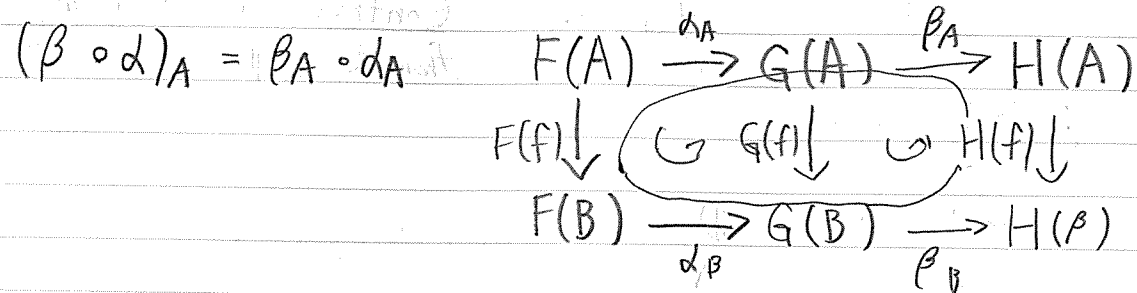 (β∘α)_A = β_A∘α_A F(A) →^{α_A} G(A) →^{β_A} H(A)
F(f)↓ G(f)↓ H(f)↓
F(B) →_{α_β} G(B) →_{β_B} H(β)